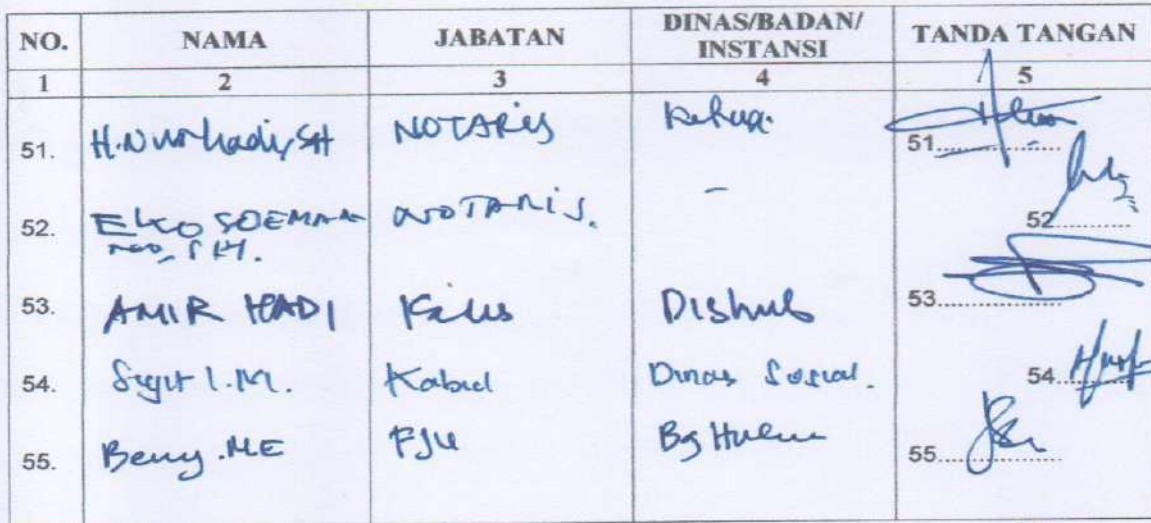 NO. NAMA JABATAN DINAS/BADAN/ INSTANSI TANDA TANGAN
1 2 3 4 5
51. H. Nurhadi, SH NOTARIS Ketua 51
52. EKO SOEMAR NOTARIS. - 52
SH.
53. AMIR HADI Dishub 53
54. Sigit I.M. Kabid Dinas Sosial. 54
55. Beny. ME FJU Bg Hukum 55